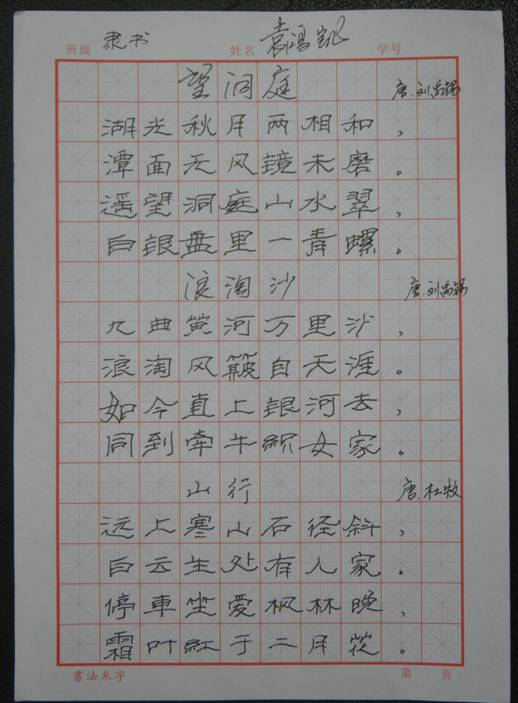 班级 隶书 姓名 袁鸿凯 学号
望洞庭 唐.刘禹锡
湖光秋月两相和，
潭面无风镜未磨。
遥望洞庭山水翠，
白银盘里一青螺。
浪淘沙 唐.刘禹锡
九曲黄河万里沙，
浪淘风簸自天涯。
如今直上银河去，
同到牵牛織女家。
山行 唐.杜牧
远上寒山石径斜，
白云生处有人家。
停車坐爱枫林晚，
霜叶紅于二月花。
書法米字 第 页